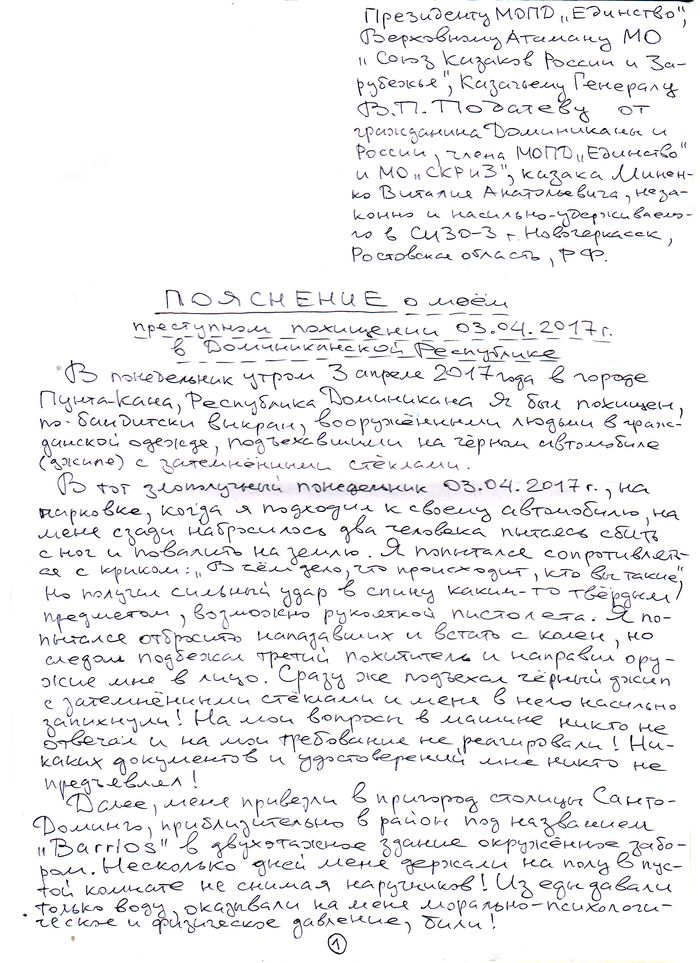 Президенту МОПД „Единство",
Верховному Атаману МО
„Союз Казаков России и За-
рубежья", Казачьему Генералу
В.П. Податеву от
гражданина Доминиканы и
России, члена МОПД „Единство"
и МО „СКРиЗ", казака Минен-
ко Виталия Анатольевича, неза-
конно и насильно-удерживаемо-
го в СИЗО-3 г. Новочеркасск,
Ростовская область, РФ.
ПОЯСНЕНИЕ о моём
преступном похищении 03.04.2017г.
в Доминиканской Республике
В понедельник утром 3 апреля 2017 года в городе
Пунта-Кана, Республика Доминикана я был похищен,
по-бандитски выкран, вооружёнными людьми в граж-
данской одежде, подъехавшими на чёрном автомобиле
(джипе) с затемнёнными стёклами.
В тот злополучный понедельник 03.04.2017г., на
парковке, когда я подходил к своему автомобилю, на
меня сзади набросилось два человека пытаясь сбить
с ног и повалить на землю. Я попытался сопротивлять-
ся с криком: „В чём дело, что происходит, кто вы такие",
но получил сильный удар в спину каким-то твёрдым
предметом, возможно рукояткой пистолета. Я по-
пытался отбросить нападавших и встать с колен, но
следом подбежал третий похититель и направил ору-
жие мне в лицо. Сразу же подъехал чёрный джип
с затемнёнными стёклами и меня в него насильно
запихнули! На мои вопросы в машине никто не
отвечал и на мои требование не реагировали! Ни-
каких документов и удостоверений мне никто не
предъявлял!
Далее, меня привезли в пригород столицы Санто-
Доминго, приблизительно в район под названием
„Barrios" в двухэтажное здание окружённое забо-
ром. Несколько дней меня держали на полу в пус-
той комнате не снимая наручников! Из еды давали
только воду, оказывали на меня морально-психологи-
ческое и физическое давление, били!
1